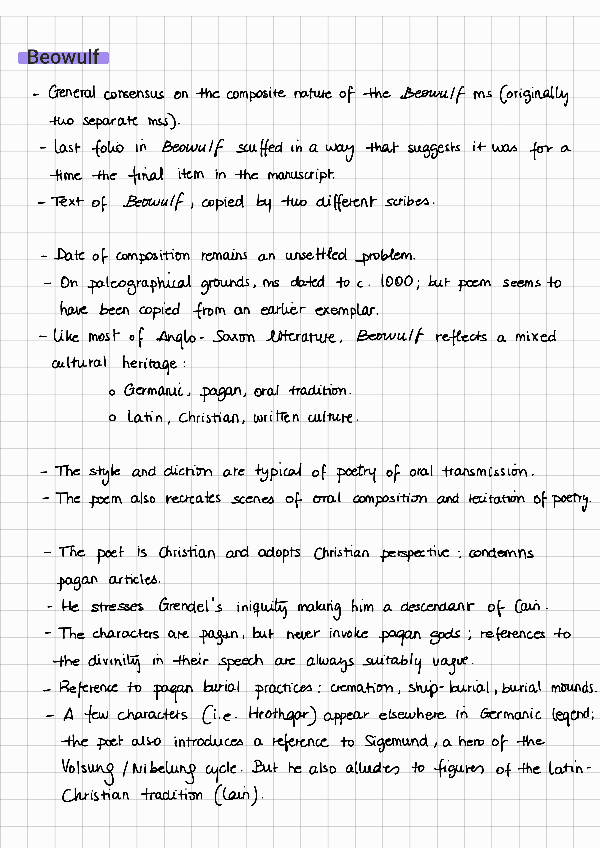 Beowulf
- General consensus on the composite nature of the Beowulf ms (originally
two separate mss).
- Last folio in Beowulf scuffed in a way that suggests it was for a
time the final item in the manuscript.
- Text of Beowulf, copied by two different scribes.
- Date of composition remains an unsettled problem.
- On paleographical grounds, ms dated to c. 1000; but poem seems to
have been copied from an earlier exemplar.
- Like most of Anglo-Saxon literature, Beowulf reflects a mixed
cultural heritage:
o Germanic, pagan, oral tradition.
o Latin, Christian, written culture.
- The style and diction are typical of poetry of oral transmission.
- The poem also recreates scenes of oral composition and recitation of poetry.
- The poet is Christian and adopts Christian perspective: condemns
pagan articles.
- He stresses Grendel's iniquity making him a descendant of Cain.
- The characters are pagan, but never invoke pagan gods; references to
the divinity in their speech are always suitably vague.
- Reference to pagan burial practices: cremation, ship-burial, burial mounds.
- A few characters (i.e. Hrothgar) appear elsewhere in Germanic legend;
the poet also introduces a reference to Sigemund, a hero of the
Volsung/Nibelung cycle. But he also alludes to figures of the Latin-
Christian tradition (Cain).